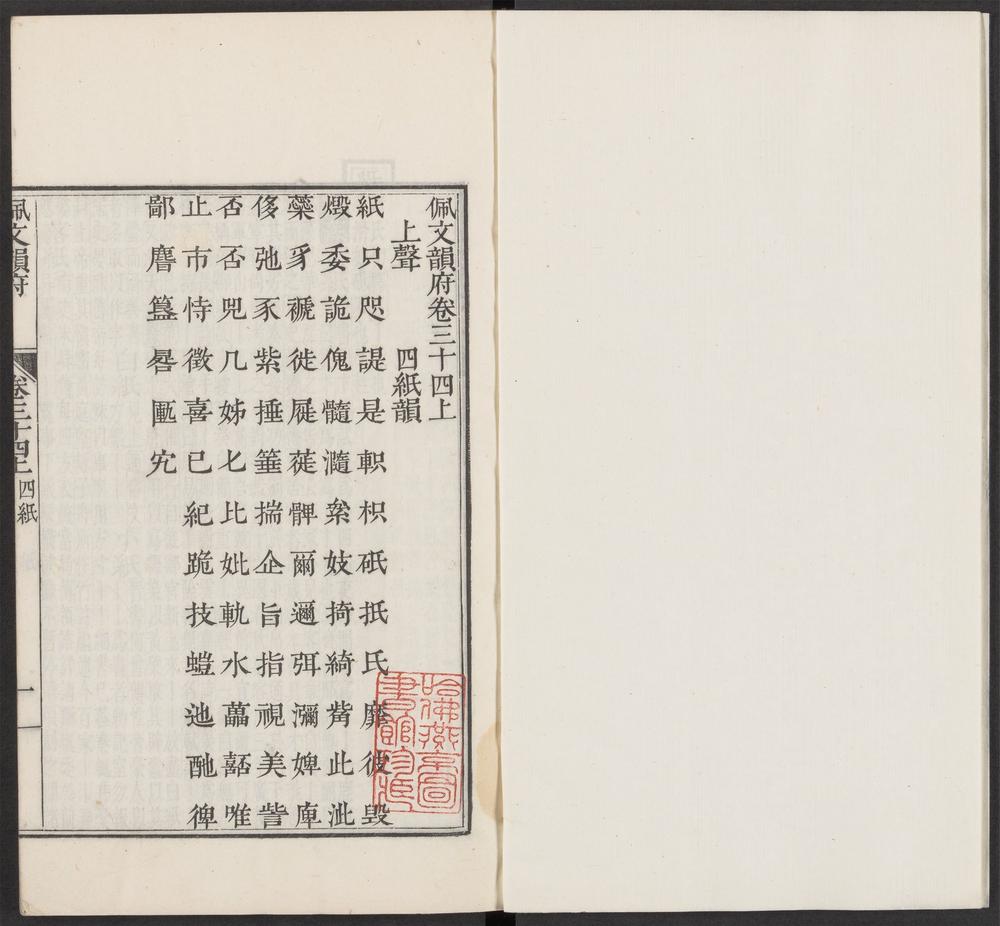 佩文韻府卷三十四上
上聲 四紙韻
紙只咫諟是軹枳砥抵氏靡彼毀
燬委詭傀髓瀡絫妓掎綺觜此泚
蘂豸褫徙屣蓰髀爾邇弭瀰婢庳
侈弛豕紫捶箠揣企旨指視美訾
否否兕几姊匕比妣軌水藟誄唯
止市恃徵喜已紀跪技螘迆酏俾
鄙麿簋晷匭宄
佩文韻府 卷三十四上 四紙 一
哈佛燕京圖書館珍藏